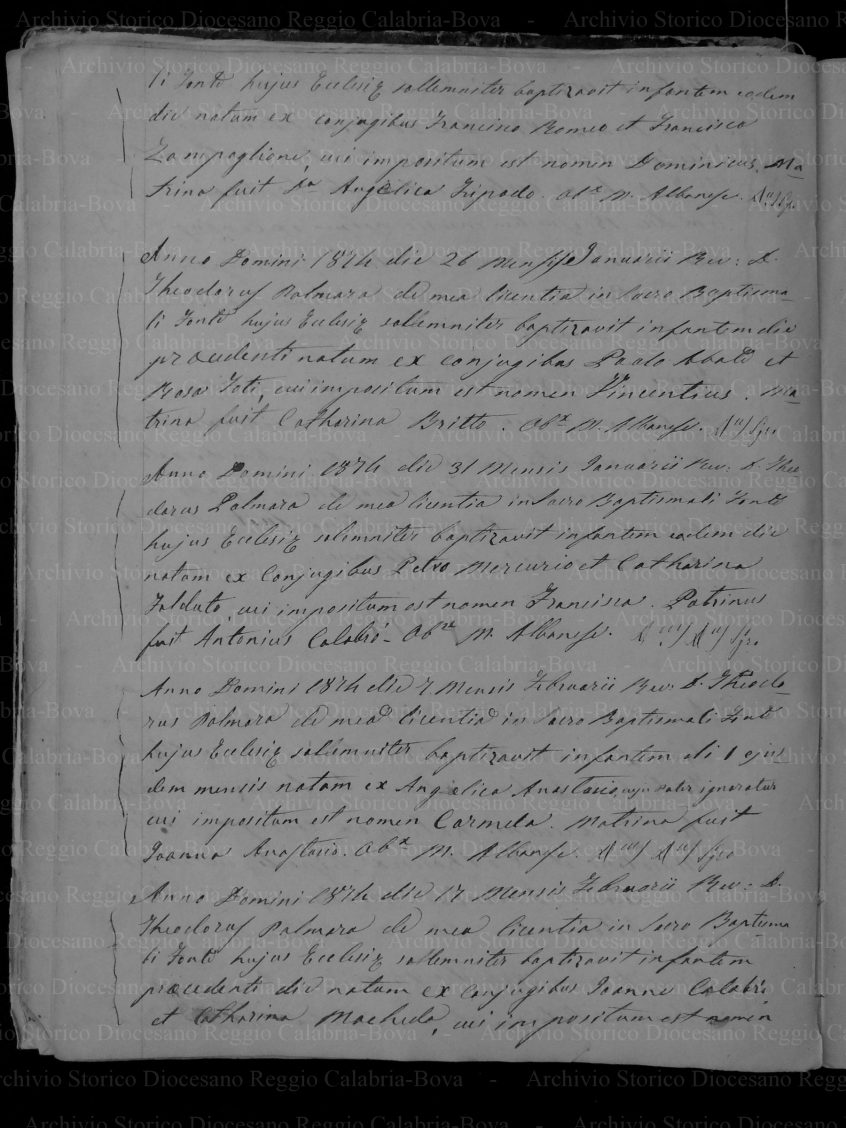 li Fonte hujus Ecclesiæ sollemniter baptizavit infantem eodem
die natum ex conjugibus Francisco Romeo et Francisca
Zampaglione, cui impositum est nomen Dominicus. Ma
trina fuit Angelica Tripodo. Obx M. Albanese.
Anno Domini 1874 die 26 Mensis Januarii Rev: D.
Theodorus Palmara de mea licentia in Sacro Baptisma
li Fonte hujus Ecclesiæ sollemniter baptizavit infantem die
præcedenti natum ex conjugibus Paolo Abate et
Rosa Foti, cui impositum est nomen Vincentius. Ma
trina fuit Catharina Britto. Obx M. Albanese.
Anno Domini 1874 die 31 Mensis Januarii Rev: D. Theo
dorus Palmara de mea licentia in Sacro Baptismali Fonte
hujus Ecclesiæ solemniter baptizavit infantem eodem die
natam ex Conjugibus Petro Mercurio et Catharina
cui impositum est nomen Francisca. Patrinus
fuit Antonius Calabrò - Obx M. Albanese.
Anno Domini 1874 die 7 Mensis Februarii Rev: D. Theodo
rus Palmara de mea licentia in Sacro Baptismali Fonte
hujus Ecclesiæ solemniter baptizavit infantem di 1 ejus
dem mensis natam ex Angelica Anastasio, cujus Pater ignoratur
cui impositum est nomen Carmela. Matrina fuit
Joanna Anastasio. Obx M. Albanese.
Anno Domini 1874 die 17 Mensis Februarii Rev: D.
Theodorus Palmara de mea licentia in Sacro Baptisma
li Fonte hujus Ecclesiæ sollemniter baptizavit infantem
præcedenti die natum ex conjugibus Joanne Calabrò,
et Catharina Macheda, cui impositum est nomen